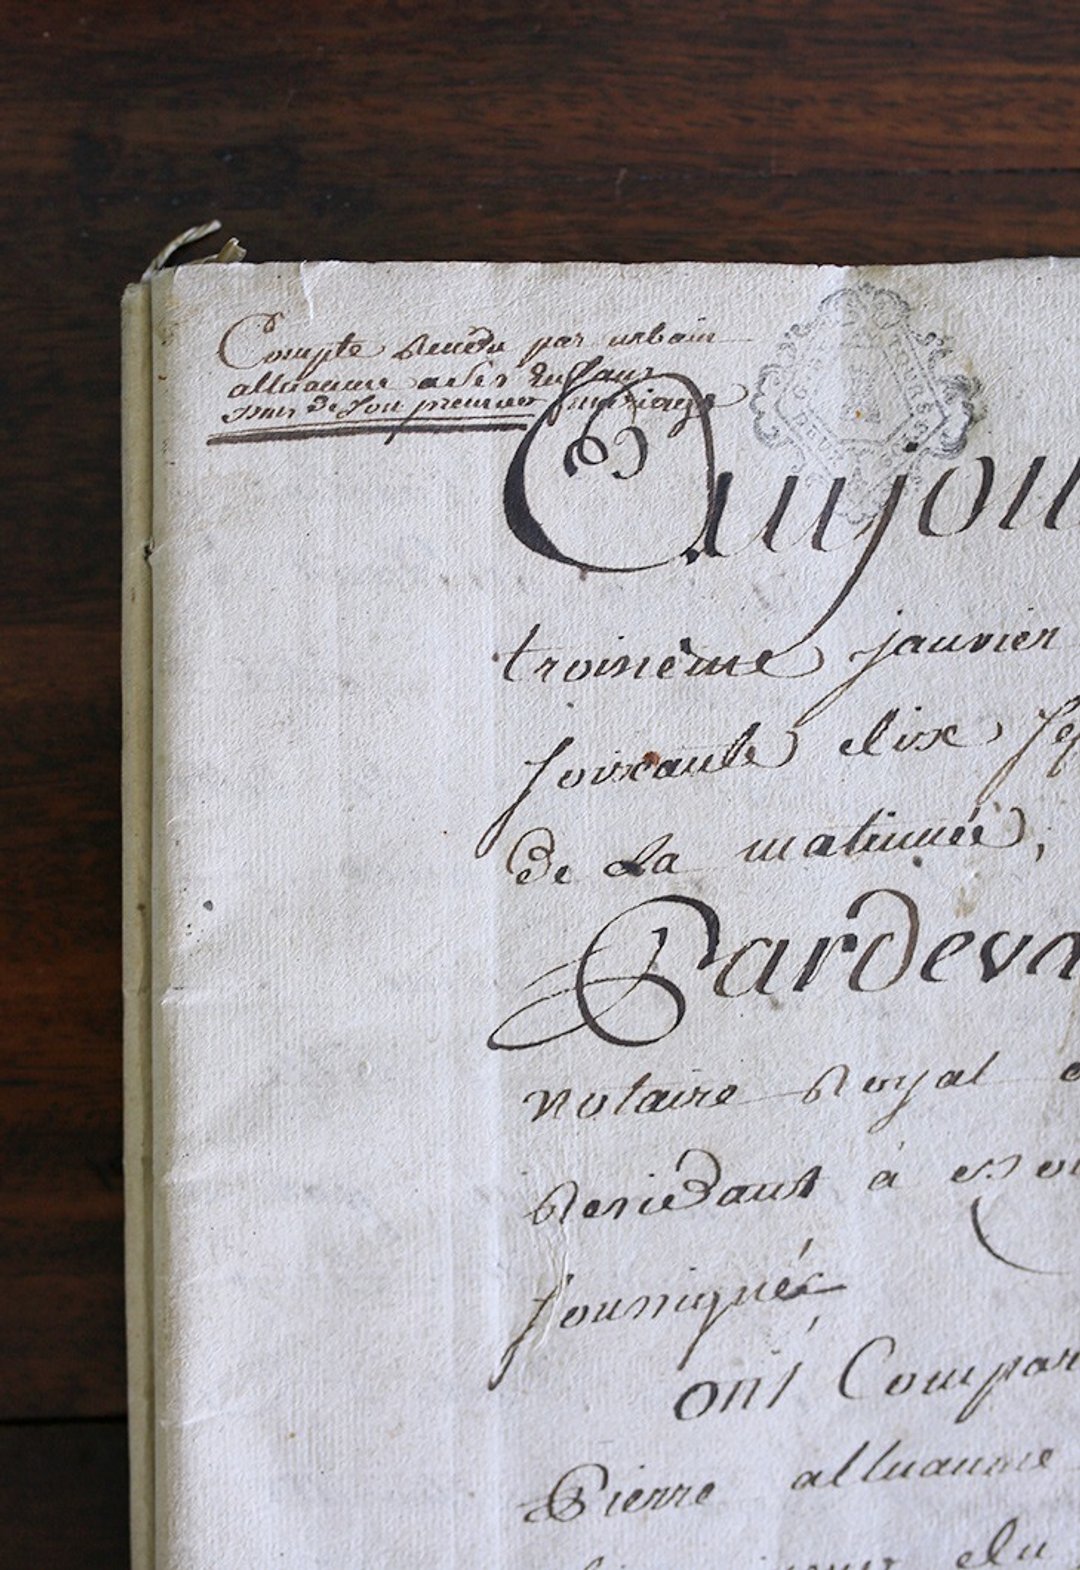 Compte Rendu par urbain
alluaume a ses Enfans
issus de son premier mariage
Aujou
troisième janvier
soixante dix sep
de La matinnée,
Pardeva
Notaire Royal
Residant à
soussigné
ont Compar
Pierre alluaume
du